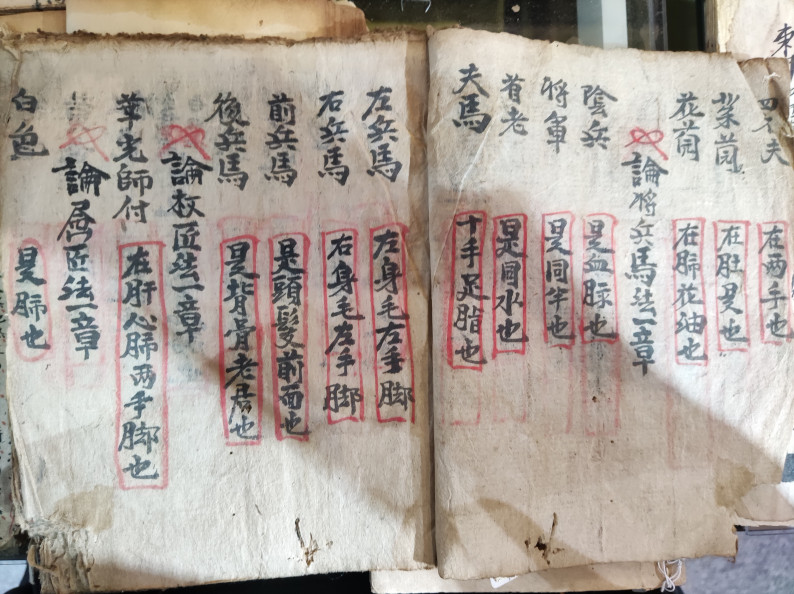 四不夫 在两手也
茶茼 在肚臭也
花茼 在肺花油也
論将兵馬法一章
陰兵 是血脉也
将軍 是同年也
者老 是目水也
夫馬 十手足脂也
左兵馬 左身毛右手脚
右兵馬 右身毛左手脚
前兵馬 是頭髮前面也
後兵馬 是背骨老居也
論教匠法一章
華光師付 在肝心肺两手脚也
論匠法一章
白色 是肺也